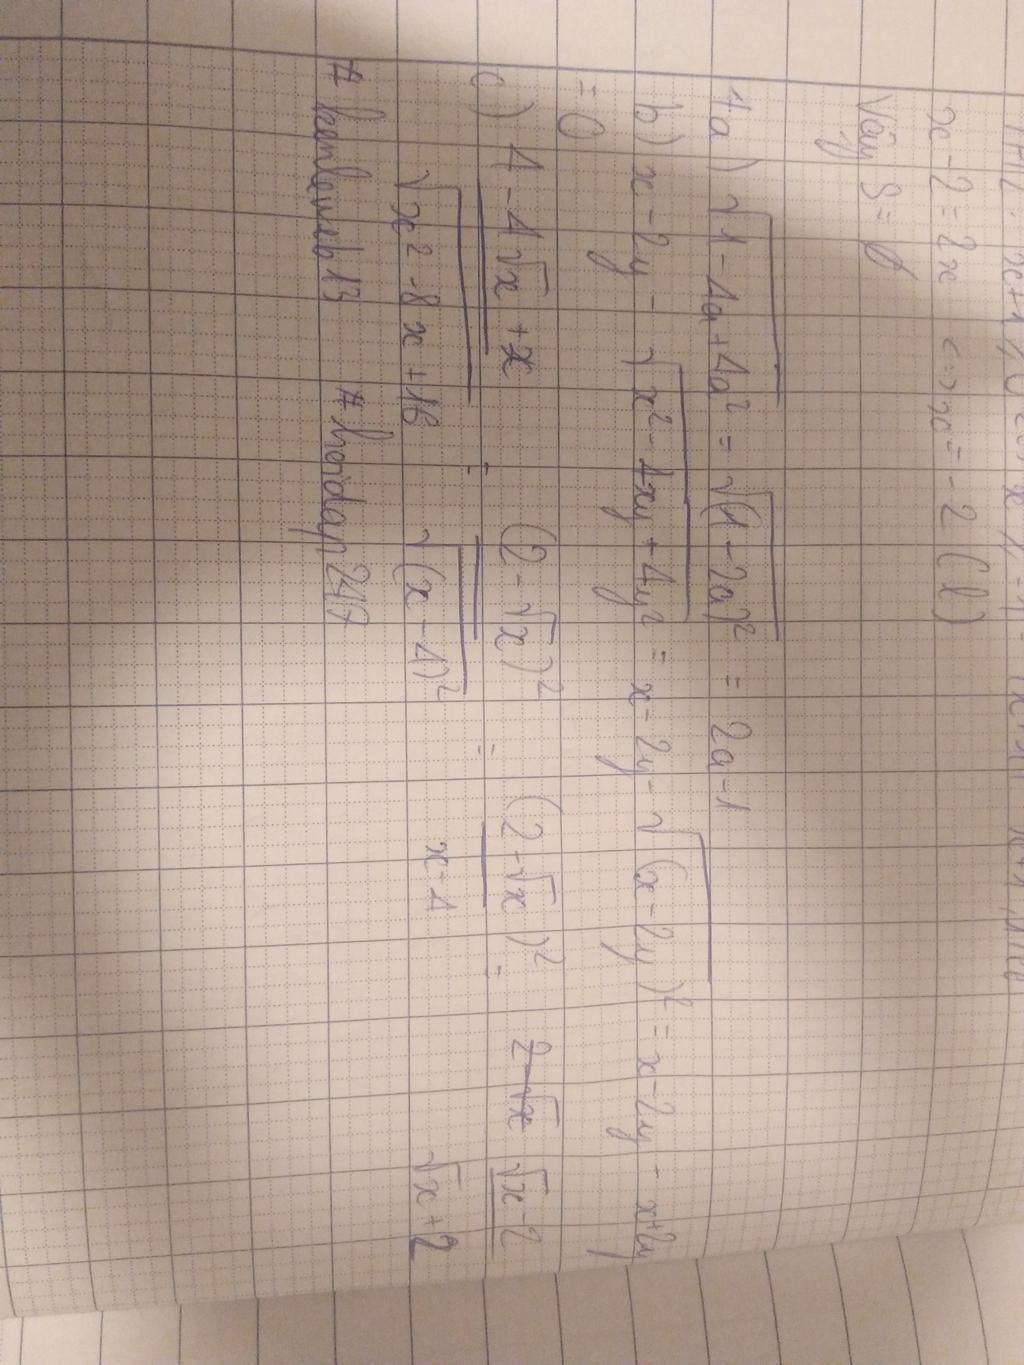 x - 2 = 2x <=> x = -2 (l)
Vậy S = ∅
4a) √(1 - 4a + 4a²) = √(1 - 2a)² = 2a - 1
b) x - 2y - √(x² - 4xy + 4y²) = x - 2y - √(x - 2y)² = x - 2y - x + 2y
= 0
c) (4 - 4√x + x) / √(x² - 8x + 16) = (2 - √x)² / √(x - 4)² = (2 - √x)² / (x - 4) = (√x - 2) / (√x + 2)
# kanleweb13 # hoidap247